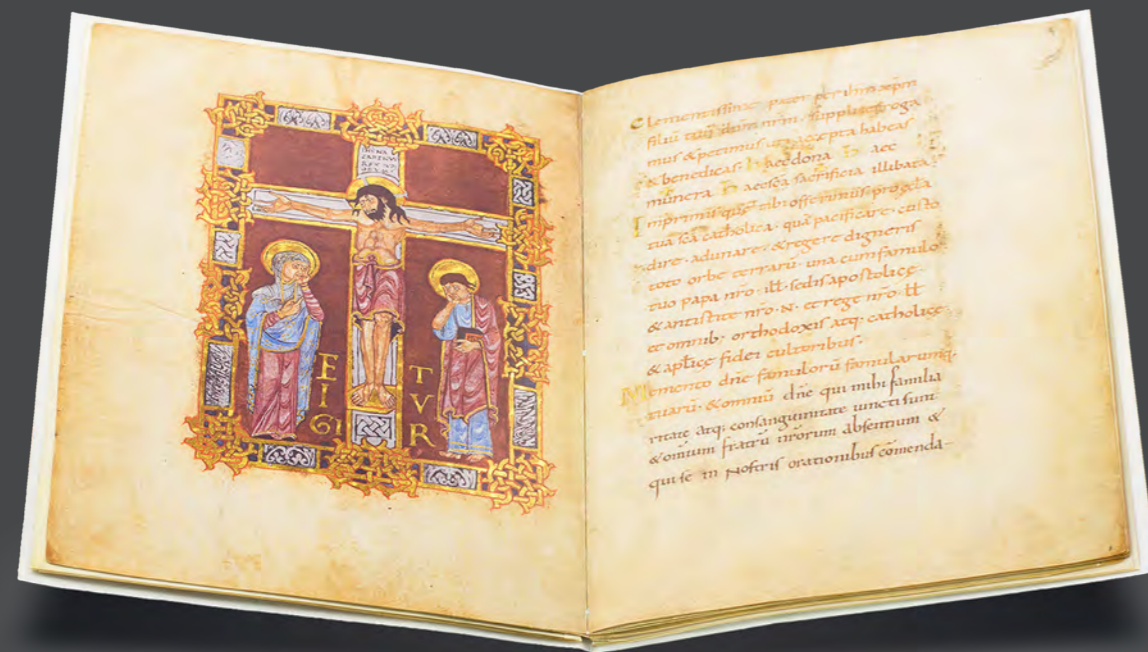 E
I
GI
T
V
R
Clementissime pater per ihm xpm
filiū tuū dnm nrm · supplices roga
mus & petimus accepta habeas
& benedicas · Haec dona Haec
munera Haec sca sacrificia illibata
Inprimis que tibi offerimus pro eccla
tua sca catholica · quā pacificare · custo
dire · adunare · & regere digneris
toto orbe terrarū · una cum famulo
tuo papa nro · ill · sedis apostolicę
& antistite nro · N · et rege nro · ill
et omnib; orthodoxis atq; catholicę
& aplicę fidei cultoribus ·
Memento dne famulorū famularumq;
tuarū · & omniū dne qui mihi familia
ritate atq; consanguinitate uncti sunt
& omnium fratrū nrorum absentium &
qui se in Nostris orationibus comenda-